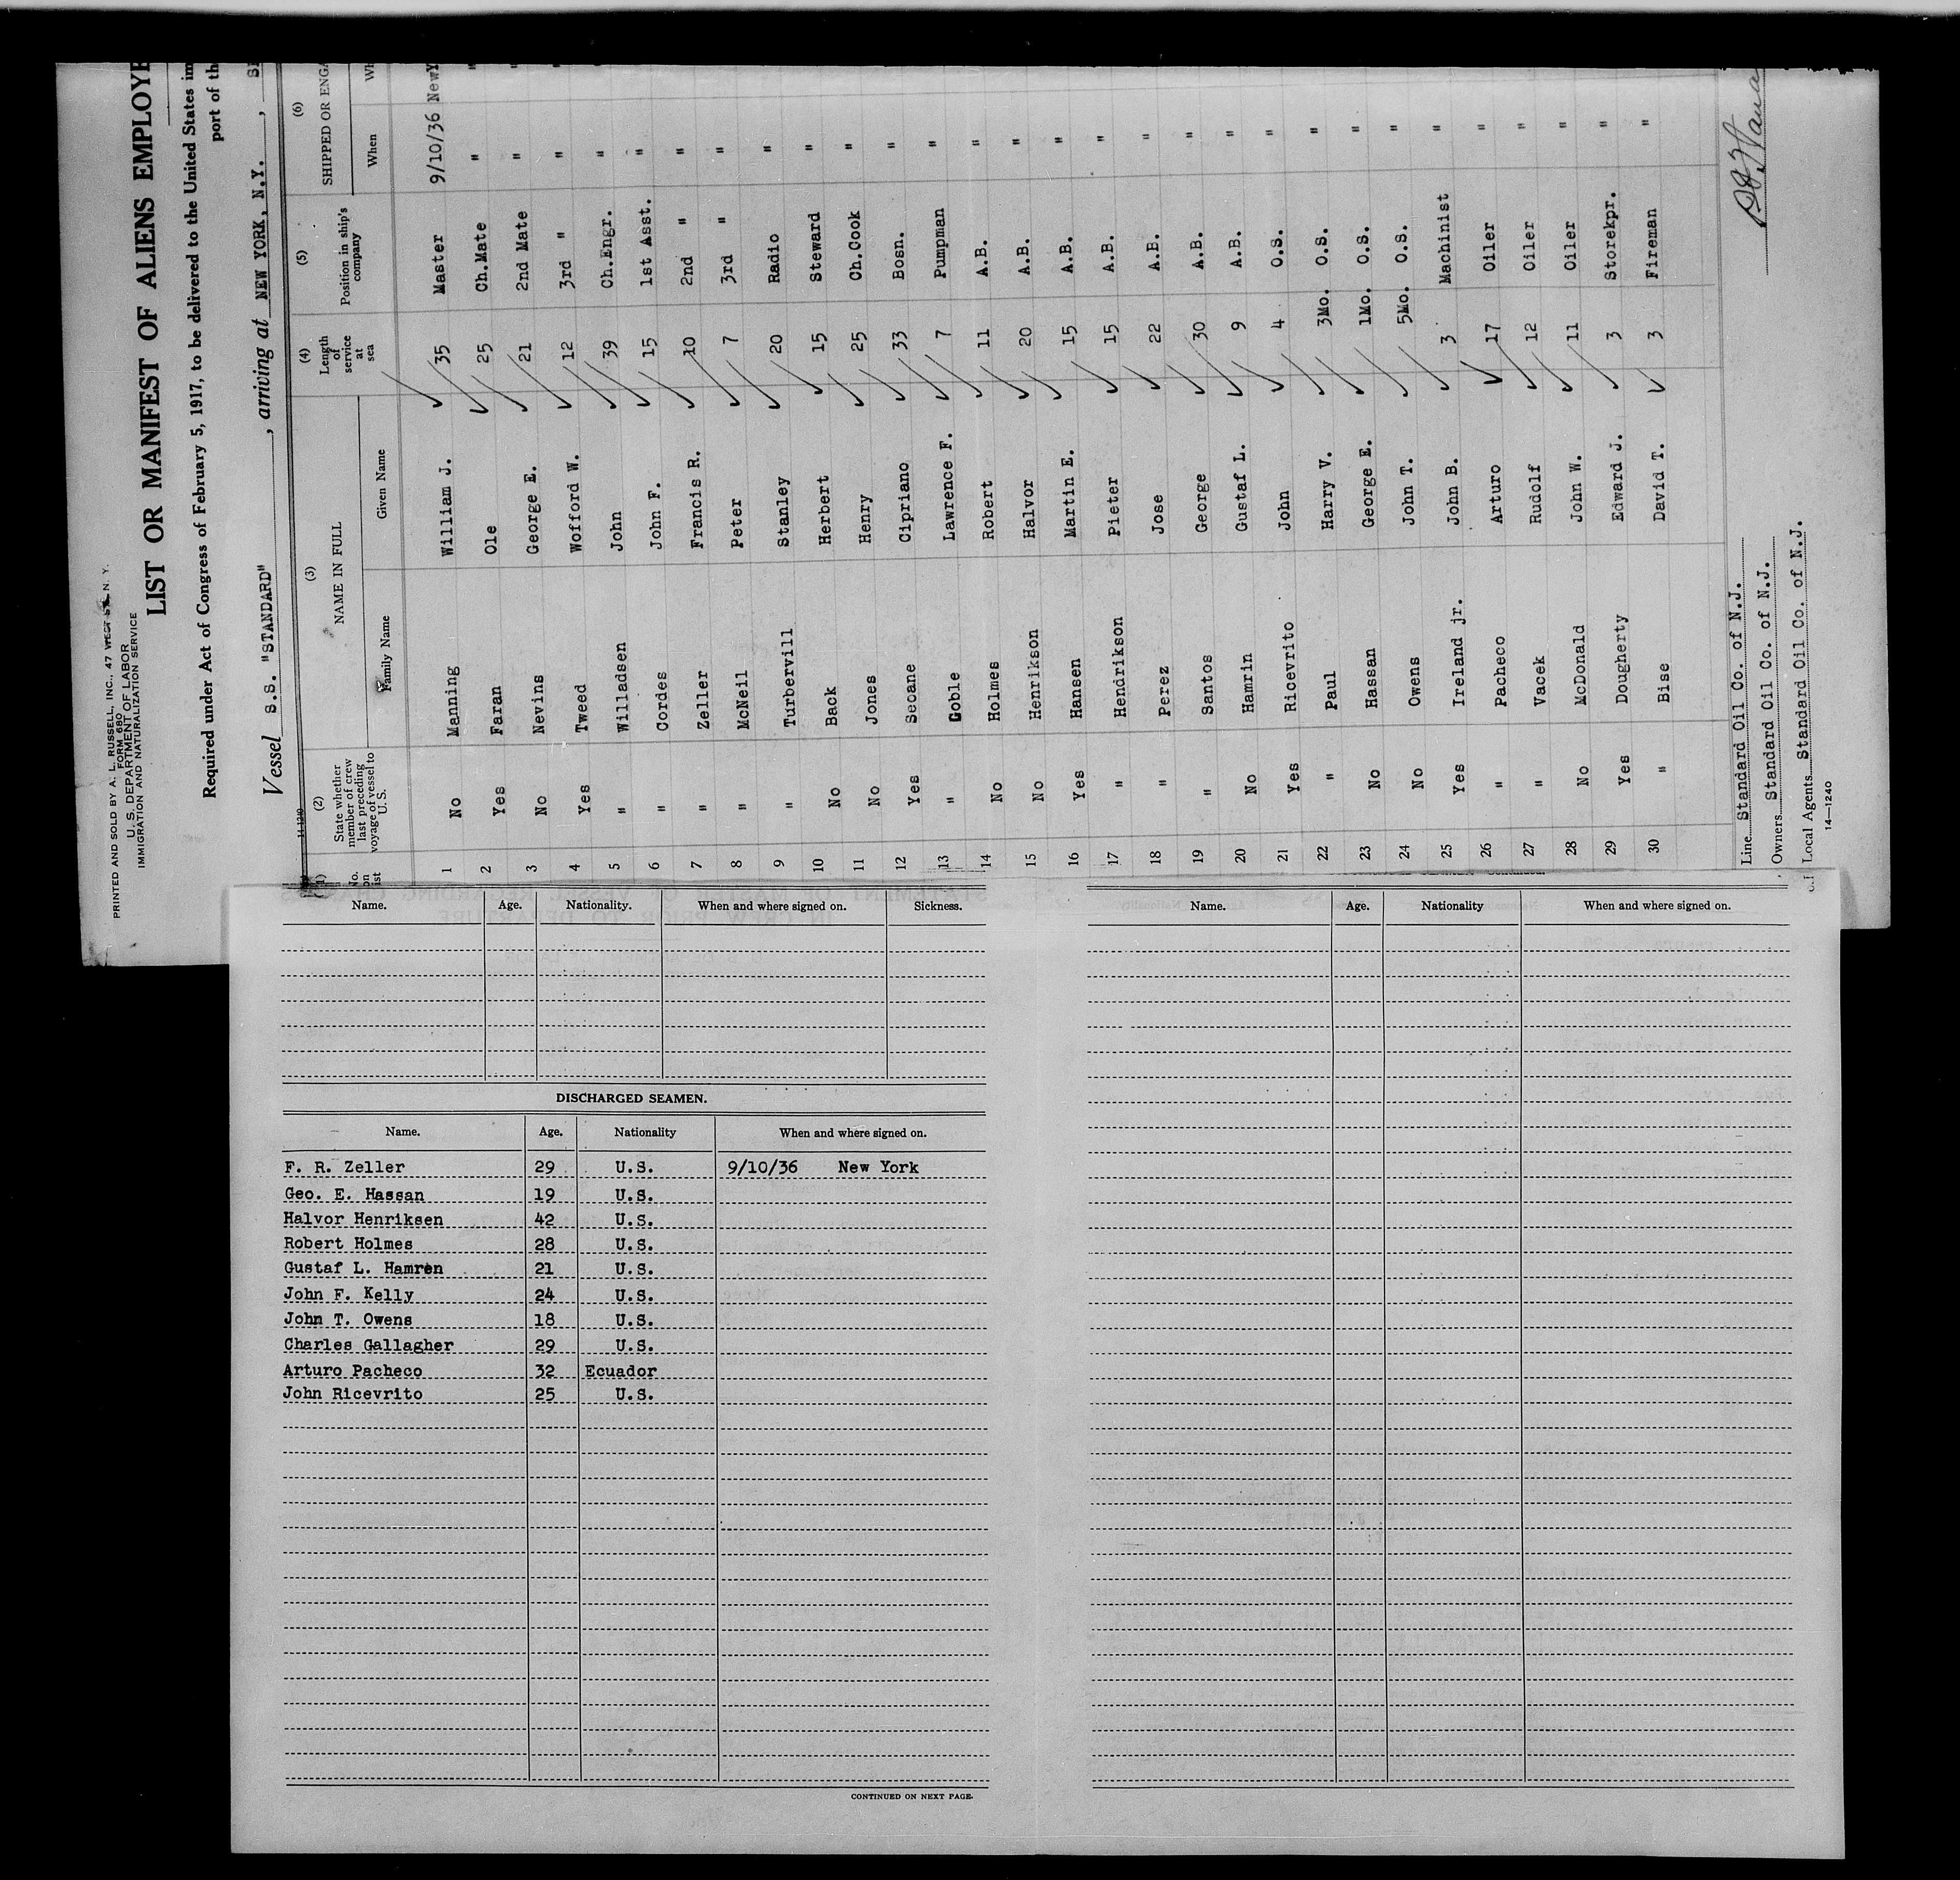 PRINTED AND SOLD BY A. L. RUSSELL, INC., 47 WEST ST., N. Y.
FORM 680
U. S. DEPARTMENT OF LABOR
IMMIGRATION AND NATURALIZATION SERVICE
LIST OR MANIFEST OF ALIENS EMPLOYE
Required under Act of Congress of February 5, 1917, to be delivered to the United States im
port of th
Vessel S.S. "STANDARD", arriving at NEW YORK, N.Y.,
14-1240
(1) (2) (3) (4) (5) (6)
No. on list State whether member of crew last preceding voyage of vessel to U.S. NAME IN FULL Length of service at sea Position in ship's company SHIPPED OR ENGA
Family Name Given Name When Wh
1 No Manning William J. 35 Master 9/10/36 NewY
2 Yes Faran Ole 25 Ch.Mate " "
3 No Nevins George E. 21 2nd Mate " "
4 Yes Tweed Wofford W. 12 3rd " " "
5 " Willadsen John 39 Ch.Engr. "
6 " Cordes John F. 15 1st Asst. "
7 " Zeller Francis R. 10 2nd " "
8 " McNeil Peter 7 3rd " "
9 " Turbervill Stanley 20 Radio "
10 No Back Herbert 15 Steward "
11 No Jones Henry 25 Ch.Cook "
12 Yes Seoane Cipriano 33 Bosn. "
13 " Goble Lawrence F. 7 Pumpman "
14 No Holmes Robert 11 A.B. "
15 No Henrikson Halvor 20 A.B. "
16 Yes Hansen Martin E. 15 A.B. "
17 " Hendrikson Pieter 15 A.B. "
18 " Perez Jose 22 A.B. "
19 " Santos George 30 A.B. "
20 No Hamrin Gustaf L. 9 A.B. "
21 Yes Ricevrito John 4 O.S. "
22 " Paul Harry V. 3Mo. O.S. "
23 No Hassan George E. 1Mo. O.S. "
24 No Owens John T. 5Mo. O.S. "
25 Yes Ireland jr. John B. 3 Machinist "
26 " Pacheco Arturo 17 Oiler "
27 " Vacek Rudolf 12 Oiler "
28 No McDonald John W. 11 Oiler "
29 Yes Dougherty Edward J. 3 Storekpr. "
30 " Bise David T. 3 Fireman "
Line Standard Oil Co. of N.J.
Owners Standard Oil Co. of N.J.
Local Agents Standard Oil Co. of N.J.
14—1240
Name. Age. Nationality. When and where signed on. Sickness.
DISCHARGED SEAMEN.
Name. Age. Nationality When and where signed on.
F. R. Zeller 29 U.S. 9/10/36 New York
Geo. E. Hassan 19 U.S.
Halvor Henriksen 42 U.S.
Robert Holmes 28 U.S.
Gustaf L. Hamren 21 U.S.
John F. Kelly 24 U.S.
John T. Owens 18 U.S.
Charles Gallagher 29 U.S.
Arturo Pacheco 32 Ecuador
John Ricevrito 25 U.S.
CONTINUED ON NEXT PAGE.
Name. Age. Nationality When and where signed on.